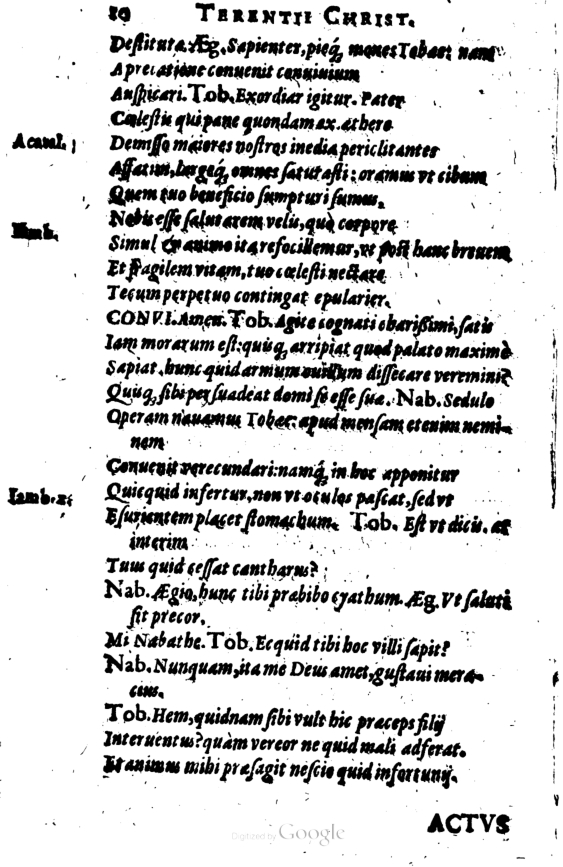 80 TERENTII CHRIST.
Deſtituta. Æg. Sapienter, pieq́, mones Tobaee: nam
A precatione conuenit conuiuium
Auſpicari. Tob. Exordiar igitur. Pater
Cœleſtis qui pane quondam ex æthere
Acatal. Demiſſo maiores noſtros inedia periclitantes
largeq́, omnes ſaturaſti: oramus vt cibum
Quem tuo beneficio ſumpturi ſumus,
Nobis eſſe ſalutarem velis, quo corpore
Simul & animo ita refocillemur, vt poſt hanc breuem
Et fragilem vitam, tuo cœleſti nectare
Tecum perpetuo contingat epularier.
CONVI. Amen. Tob. Agite cognati chariſſimi, ſatis
Iam moratum eſt: quiſq, arripiat quod palato maximè
Sapiat, hunc quid armum diſſecare veremini?
Quiſq, ſibi perſuadeat domi ſe eſſe ſua. Nab. Sedulo
Operam nauamus Tobaee: apud menſam etenim nemi-
nem
Conuenit verecundari: namq́, in hoc apponitur
Iamb. Quicquid infertur, non vt oculos paſcat, ſed vt
Eſurientem placet ſtomachum. Tob. Eſt vt dicis. at
interim
Tuus quid ceſſat cantharus?
Nab. Ægio, hunc tibi præbibo cyathum. Æg. Vt ſaluti
ſit precor.
Mi Nabathe. Tob. Ecquid tibi hoc villi ſapit?
Nab. Nunquam, ita me Deus amet, guſtaui mera-
cius.
Tob. Hem, quidnam ſibi vult hic præceps filij
Interuentus? quàm vereor ne quid mali adferat.
Et animus mihi præſagit neſcio quid infortunij.
ACTVS
Digitized by Google